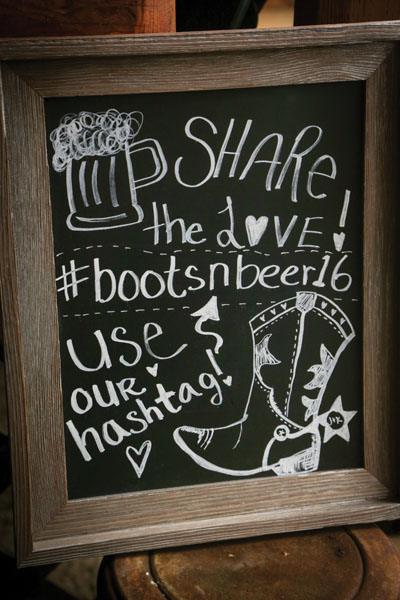 SHARe
the LOVE!
#bootsnbeer16
use
our
hashtag!